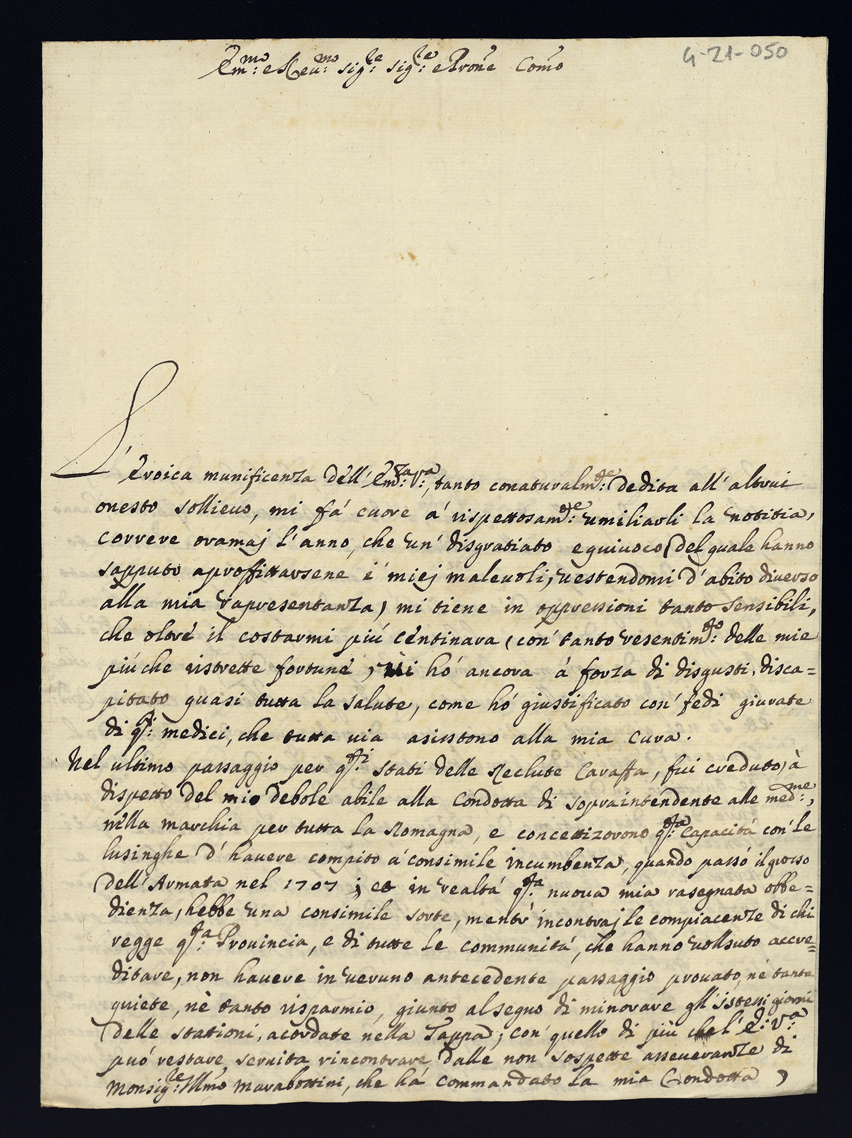 4-21-050
Em:mo e Reu:mo sig:re sig:re e Prone Comō
L'eroica munificenza dell'Em:za V:a, tanto conaturalm:te dedita all'altrui
onesto sollieuo, mi fa' cuore a' rispettosam:te umiliarli la notitia,
correre oramaj l'anno, che un' disgratiato equiuoco (del quale hanno
sapputo aproffittarsene i' miej maleuoli, uestendomi d'abito diuerso
alla mia rapresentanza) mi tiene in oppressioni tanto sensibili,
che oltre il costarmi piú centinara (con' tanto resentim:to delle mie
piú che ristrette fortune) ui ho' ancora á forza di disgusti, disca=
pitato quasi tutta la salute, come ho' giustificato con' fedi giurate
di q:ti medici, che tutta uia asistono alla mia cura.
Nel ultimo passaggio per q:ti stati delle Reclute Caraffa, fui creduto, à
dispetto del mio debole abile alla Condotta di sopraintendente alle med:me,
nella marchia per tutta la Romagna, e concettizorono q:ta Capacitá con' le
lusinghe d'hauere compito a' consimile incumbenza, quando passó il grosso
dell'Armata nel 1707; et in realtá q:ta nuoua mia rasegnata obbe=
dienza, hebbe una consimile sorte, mentr' incontraj le compiacenze di chi
regge q:ta Prouincia, e di tutte le communitá, che hanno uolsuto accre=
ditare, non hauere in ueruno antecedente passaggio prouato, né tanta
quiete, nè tanto risparmio, giunto al segno di minorare gli'istessi giorni
delle stationi, acordate nella Tappa; con' quello di piú che l'E: V:a
puó restare seruita rincontrare dalle non' sospette asseueranze di
Monsig:re Illmō Marabottini, che há commandato la mia Condotta,